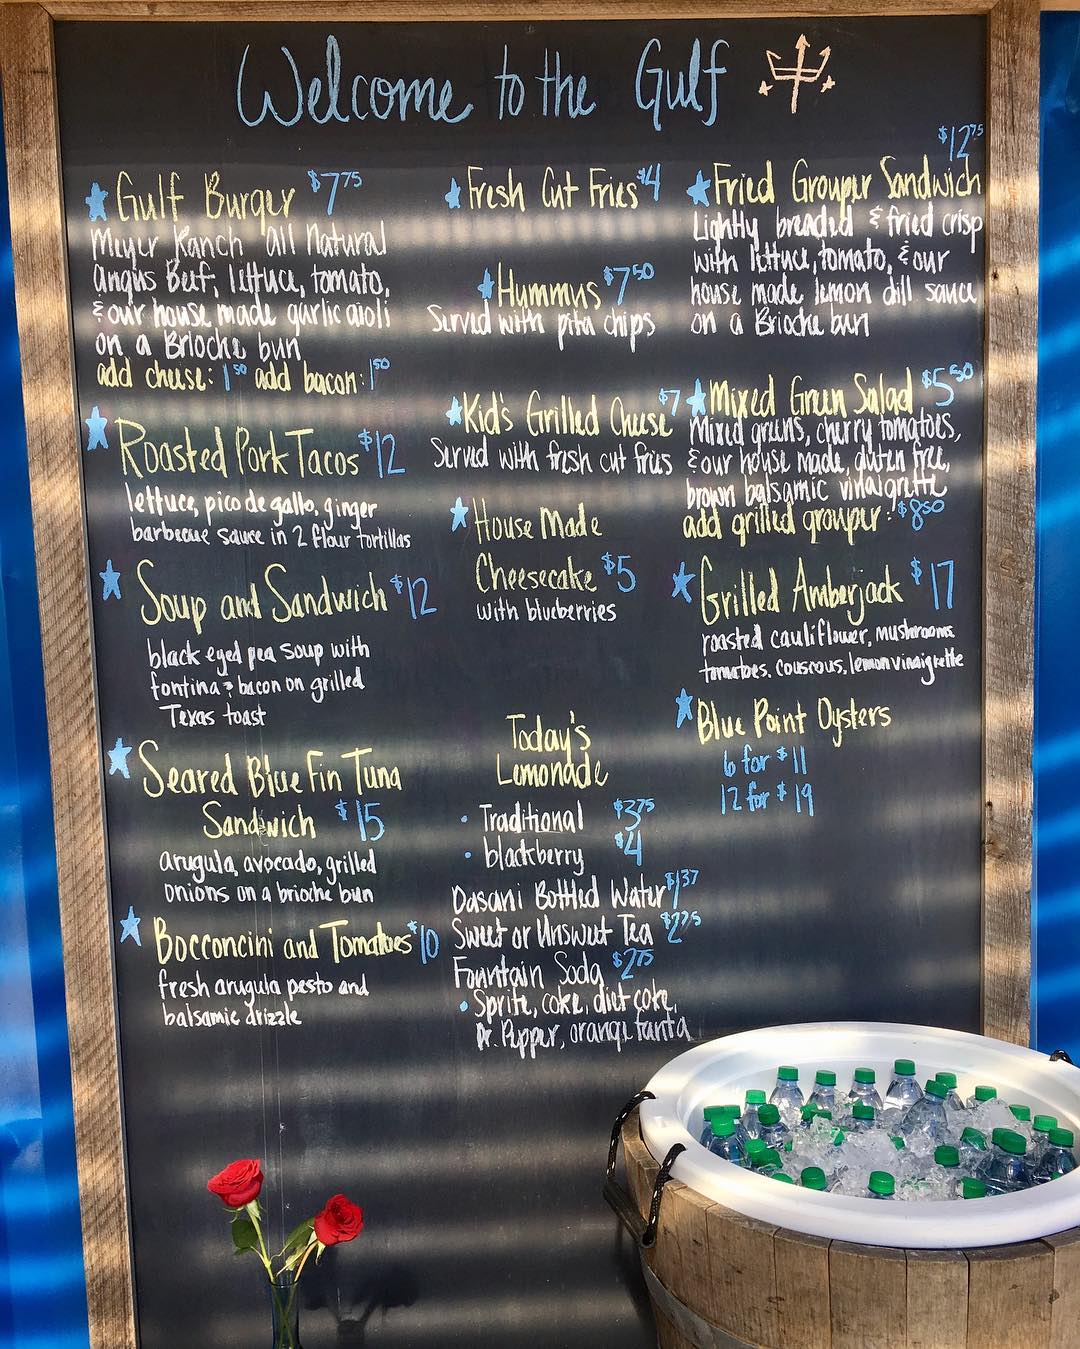 Welcome to the Gulf
Gulf Burger $7.75
Meyer Ranch all Natural
angus Beef, lettuce, tomato,
& our house made garlic aioli
on a Brioche bun
add cheese: 1.50 add bacon: 1.50
Roasted Pork Tacos $12
lettuce, pico de gallo, ginger
barbecue sauce in 2 flour tortillas
Soup and Sandwich $12
black eyed pea soup with
fontina & bacon on grilled
Texas toast
Seared Blue Fin Tuna
Sandwich $15
arugula, avocado, grilled
onions on a brioche bun
Bocconcini and Tomatoes $10
fresh arugula pesto and
balsamic drizzle
Fresh Cut Fries $4
Hummus $7.50
Served with pita chips
Kid's Grilled Cheese $7
Served with fresh cut fries
House Made
Cheesecake $5
with blueberries
Today's
Lemonade
• Traditional $3.75
• blackberry $4
Dasani Bottled Water $1.37
Sweet or Unsweet Tea $2.75
Fountain Soda $2.75
• Sprite, coke, diet coke,
Dr. Pepper, orange fanta
$12.75
Fried Grouper Sandwich
Lightly breaded & fried crisp
with lettuce, tomato, & our
house made lemon dill sauce
on a Brioche bun
Mixed Green Salad $5.50
Mixed greens, cherry tomatoes,
& our house made, gluten free,
brown balsamic vinaigrette
add grilled grouper: $8.50
Grilled Amberjack $17
roasted cauliflower, mushrooms
tomatoes, couscous, lemon vinaigrette
Blue Point Oysters
6 for $11
12 for $19